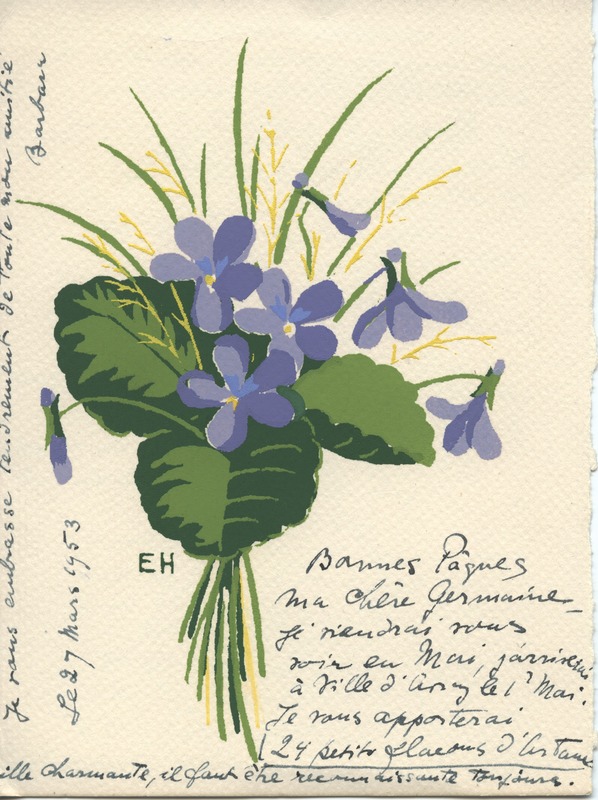 EH
Bonnes Pâques
ma chère Germaine
je viendrai vous
voir en Mai, j'arriverai
à Ville d'Avray le 1er Mai.
Je vous apporterai
24 petits flacons d'
ille charmante, il faut être reconnaissante toujours.
Je vous embrasse tendrement de toute mon amitié
Barbara
Le 27 Mars 1953